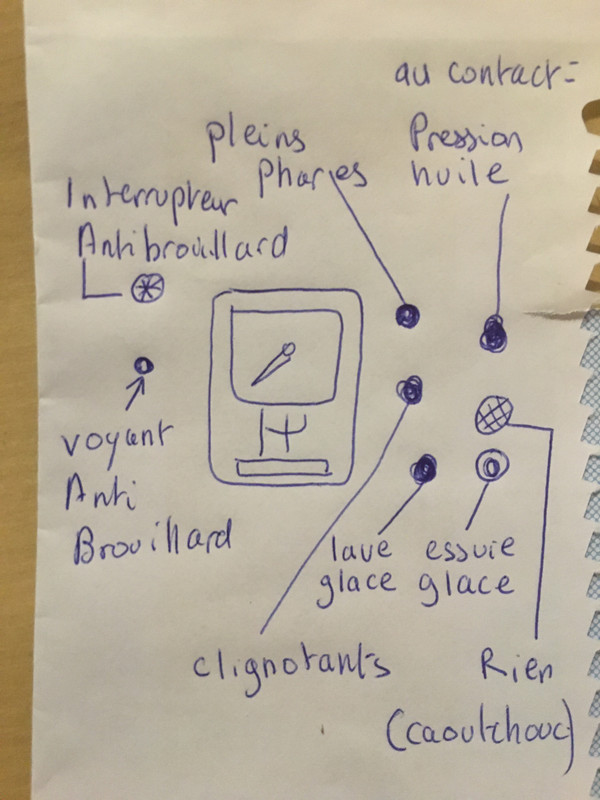 au contact=
pleins
phares
Pression
huile
Interrupteur
Antibrouillard
voyant
Anti
Brouillard
lave
glace
essuie
glace
clignotants
Rien
(caoutchouc)